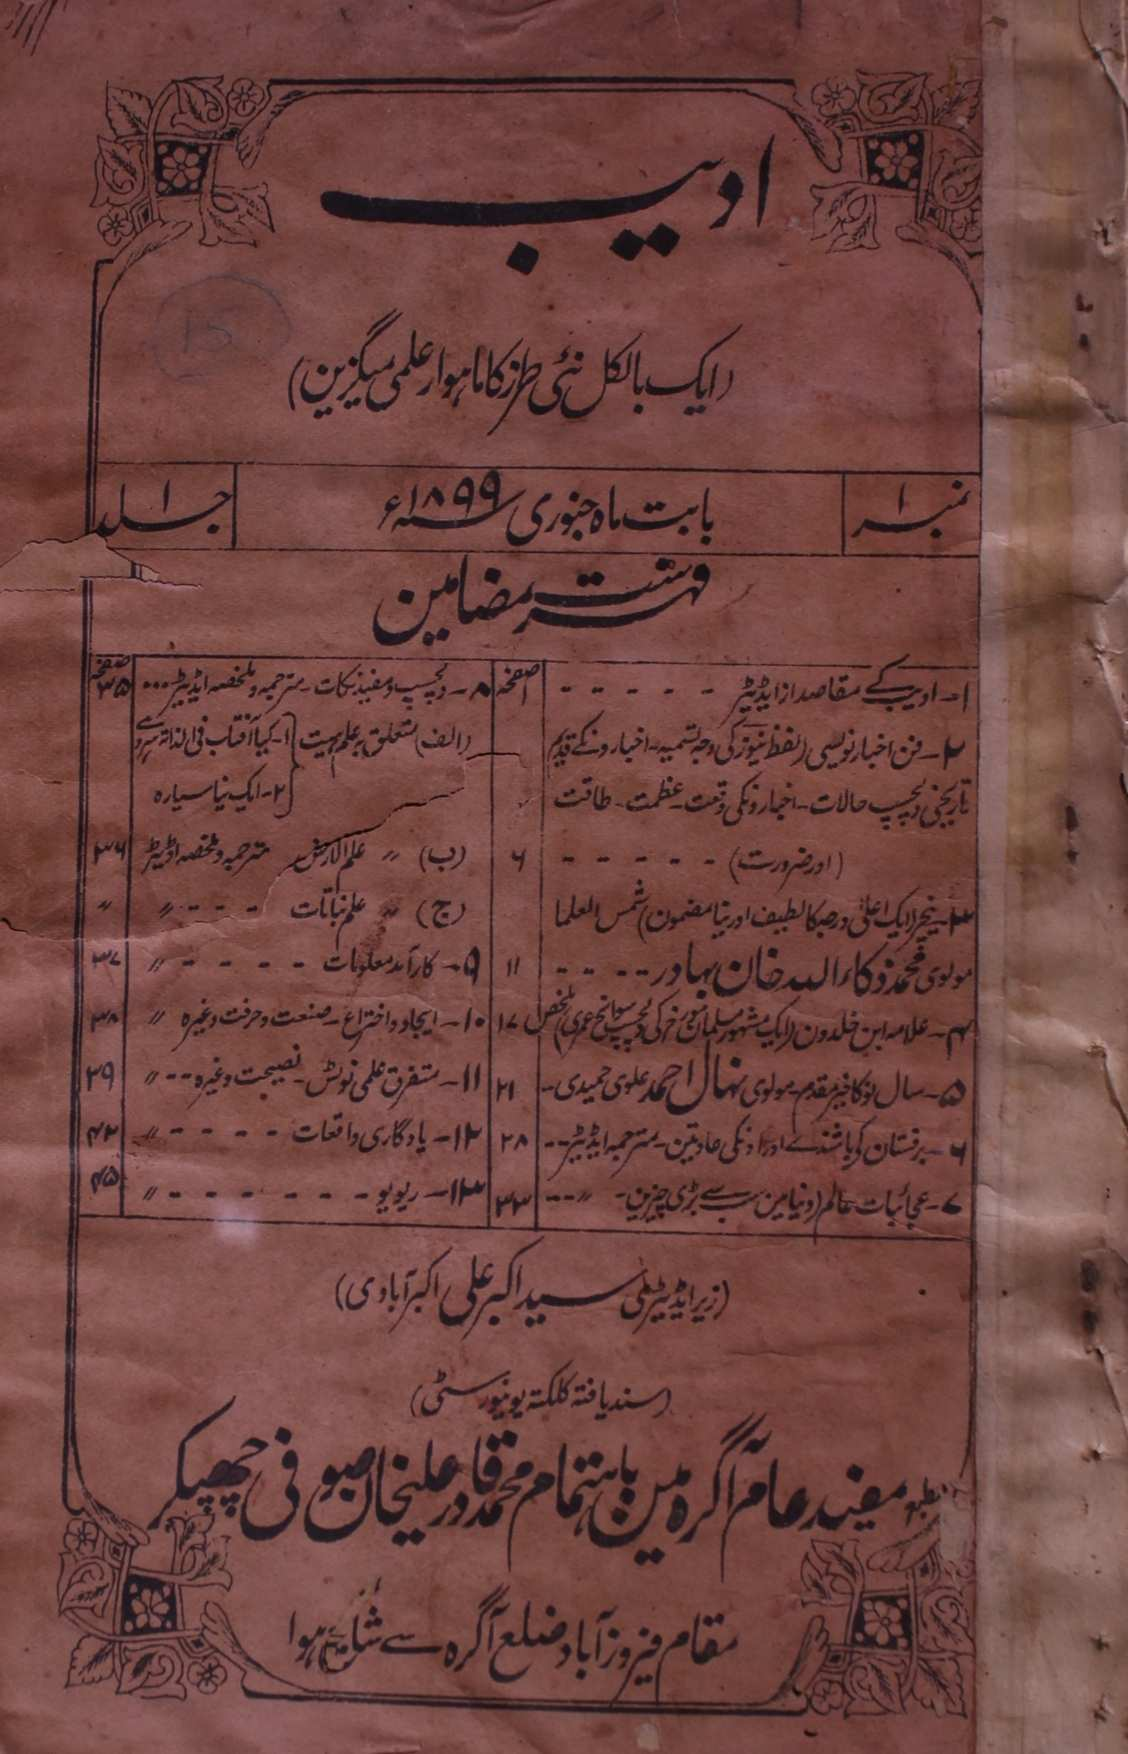 ادیب
15
(ایک بالکل نئی طرز کا ماہوار علمی میگزین)
نمبر ۱
بابت ماہ جنوری سنہ ۱۸۹۹ء
جلد ۱
فہرست مضامین
۱- ادیب کے مقاصد از ایڈیٹر - - - - - صفحہ ۱
۲- فن اخبار نویسی (لفظ نیوز کی وجہ تسمیہ - اخبارونکے قدیم
تاریخی دلچسپ حالات - اخبارونکی وقعت - عظمت - طاقت
(اور ضرورت) - - - - - ۶
۳- نیچر (ایک اعلیٰ درجہ کا لطیف اور نیا مضمون) شمس العلما
مولوی محمد ذکاء اللہ خان بہادر - - - - - ۱۱
۴- علامہ ابن خلدون (ایک مشہور مسلمان مورخ کی دلچسپ سوانح عمری) ملخص ۱۷
۵- سال نو کا خیر مقدم - مولوی نہال احمد علوی حمیدی - ۲۱
۶- برفستان کی باشندے اور اونکی عادتین - مترجمہ ایڈیٹر - - ۲۸
۷- عجائبات عالم (دنیا مین سب سے بڑی چیزین - 〃 - - ۳۳
۸- دلچسپ و مفید نکات - مترجمہ و ملخصہ ایڈیٹر - - - صفحہ ۳۵
(الف) متعلق بہ علم ہیئت { ۱- کیا آفتاب فی الذاتہ سرد ہے
۲- ایک نیا سیارہ
(ب) 〃 علم الارض مترجمہ و ملخصہ اڈیٹر ۳۶
(ج) 〃 علم نباتات - - - - 〃 〃
۹- کارآمد معلومات - - - - - 〃 ۳۷
۱۰- ایجاد و اختراع - صنعت و حرفت وغیرہ 〃 ۳۸
۱۱- متفرق علمی نوٹس - نصیحت وغیرہ - - 〃 ۳۹
۱۲- یادگاری واقعات - - - - - 〃 ۴۲
۱۳- ریویو - - - - - - - 〃 ۴۵
(زیر ایڈیٹری سید اکبر علی اکبرآبادی)
(سند یافتہ کلکتہ یونیورسٹی)
مطبع مفید عام آگرہ مین باہتمام محمد قادر علیخان صوفی چھپکر
مقام فیروزآباد ضلع آگرہ سے شایع ہوا